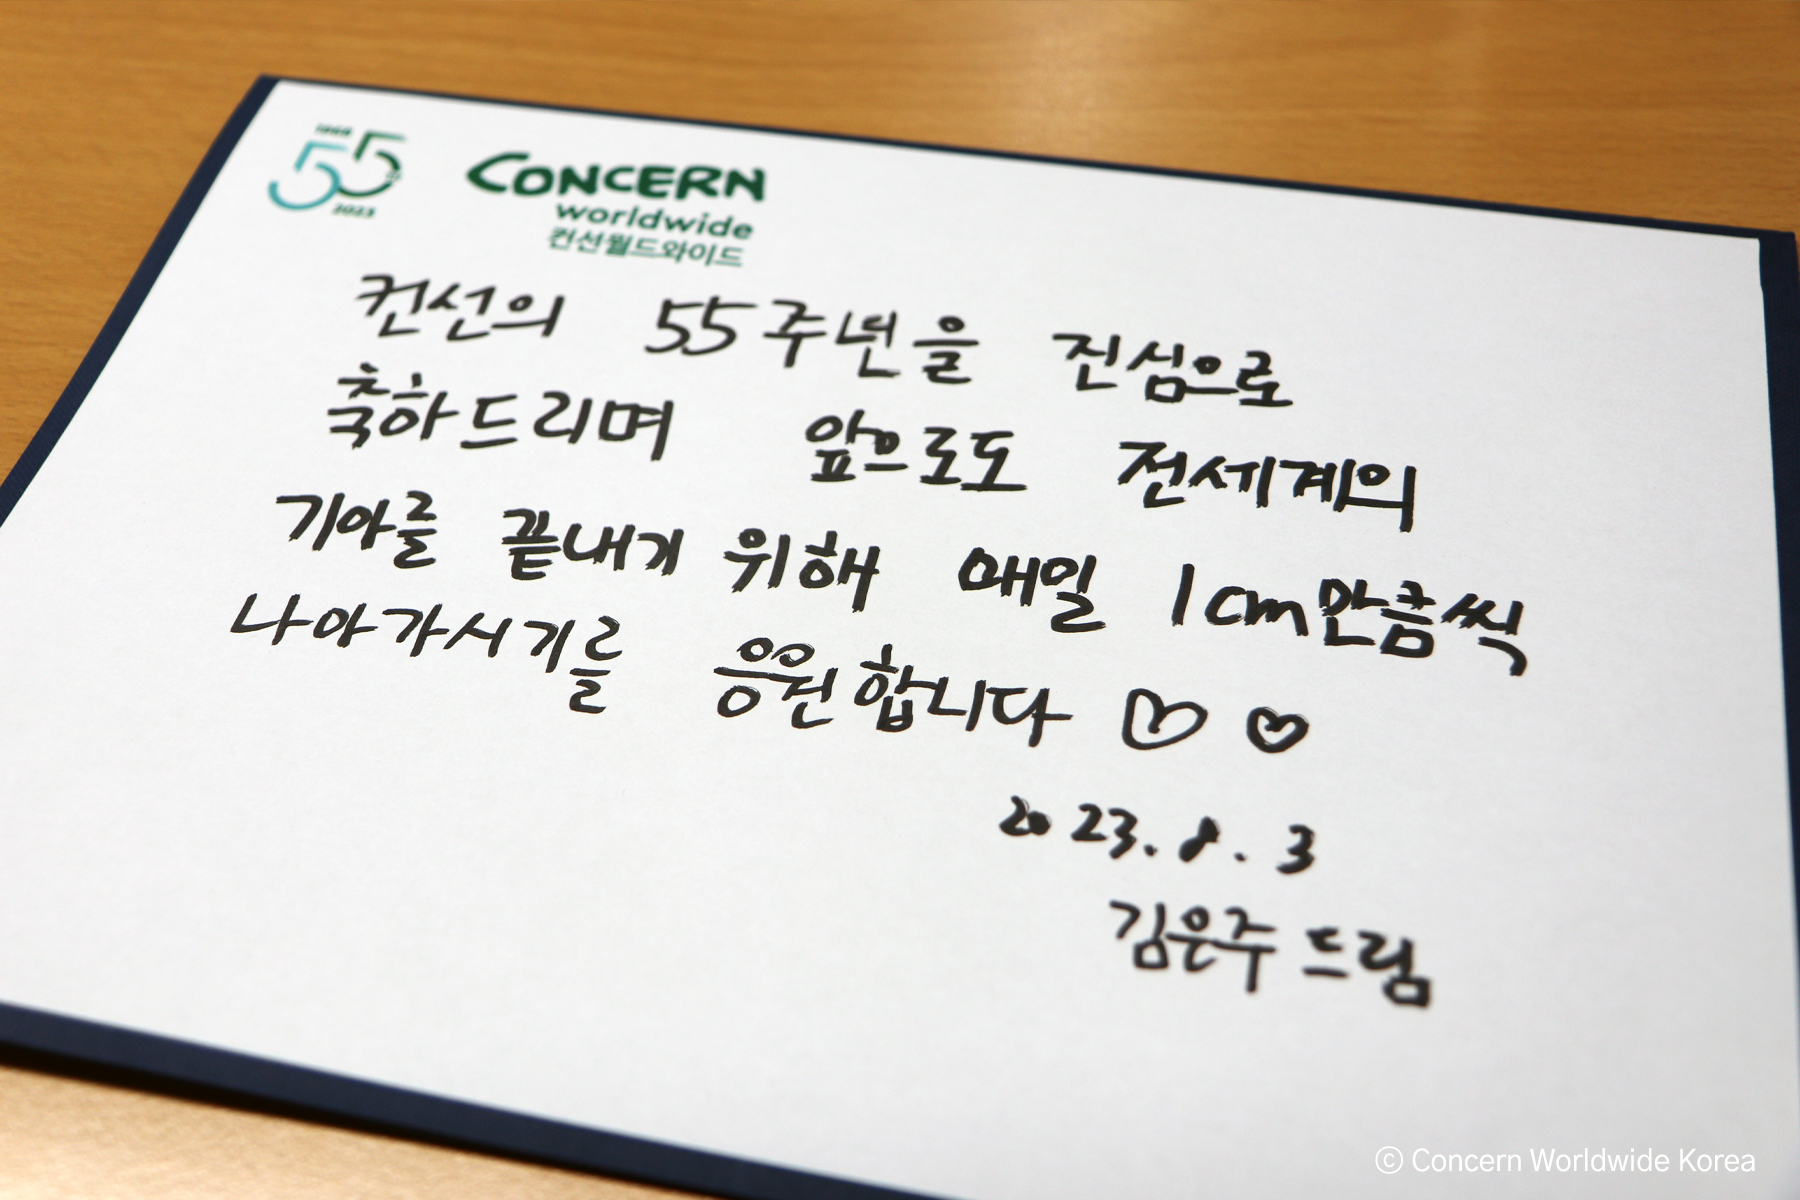 1968
55
2023
CONCERN
worldwide
컨선월드와이드
컨선의 55주년을 진심으로
축하드리며 앞으로도 전세계의
기아를 끝내기 위해 매일 1cm만큼씩
나아가시기를 응원합니다 ♡ ♡
2023. 8. 3
김은주 드림
© Concern Worldwide Korea